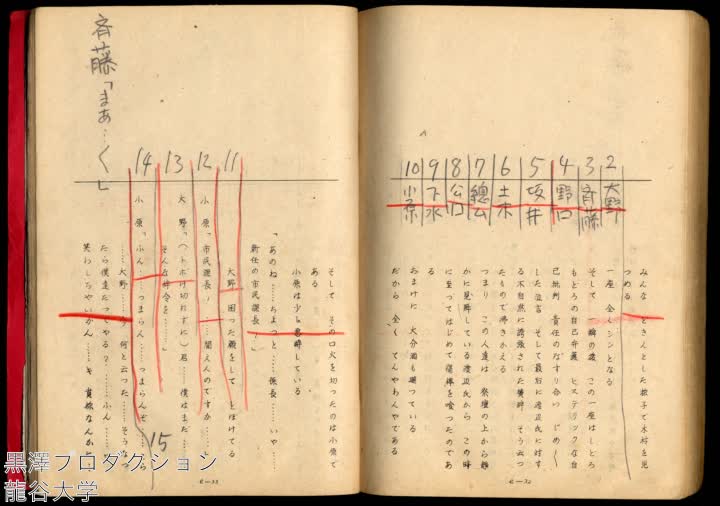 2 大野
3 斉藤
4 野口
5 坂井
6 土木
7 總ム
8 公口
9 下水
10 小原
みんな しきんとした様子で木村を見
つめる
一座 全くシンとなる
そして 一瞬の後 この一座はしどろ
もどろの自己弁護 ヒステリックな自
己批判 責任のなすり合い じめ〱
した泣言 そして最后に渡辺氏に対す
る不自然に誇張された讃辞 そう云っ
たもので沸きかえる
つまり この人達は 祭壇の上から静
かに見降している渡辺氏から この時
に至ってはじめて復讐を喰ったのであ
る
おまけに 大分酒も廻っている
だから 全く てんやわんやである
6—32
そして その口火を切ったのは小原で
ある
小原は少し悪酔している
「あのね……ちょっと……係長…… いや……
新任の市民課長!」
11
大野 困った顔をして とぼけてる
12
小原「市民課長!……聞えんのですか……」
13
大野「(トボけ切れずに)君……僕はまだ……
そんな辞令を……」
14
小原「ふん……つまらん……つまらんぞ……こら
……大野……今 何と云った……そうなっ
たら僕達だってやる?……ふん……
笑わしちゃいかん……
15
斉藤「まあ…〱」
6—33
黒澤プロダクション
龍谷大学